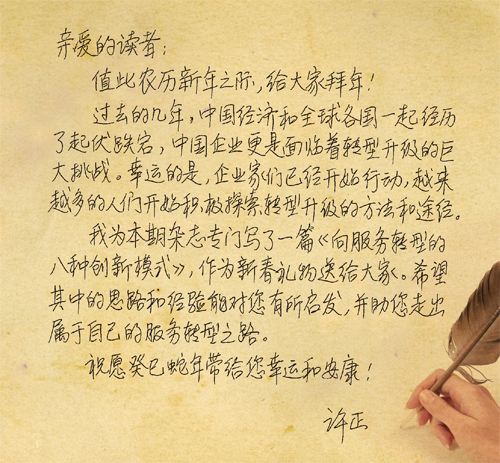 亲爱的读者：
值此农历新年之际，给大家拜年！
过去的几年，中国经济和全球各国一起经历
了起伏跌宕，中国企业更是面临着转型升级的巨
大挑战。幸运的是，企业家们已经开始行动，越来
越多的人们开始积极探索转型升级的方法和途经。
我为本期杂志专门写了一篇《向服务转型的
八种创新模式》，作为新春礼物送给大家。希望
其中的思路和经验能对您有所启发，并助您走出
属于自己的服务转型之路。
祝愿癸巳蛇年带给您幸运和安康！
许正